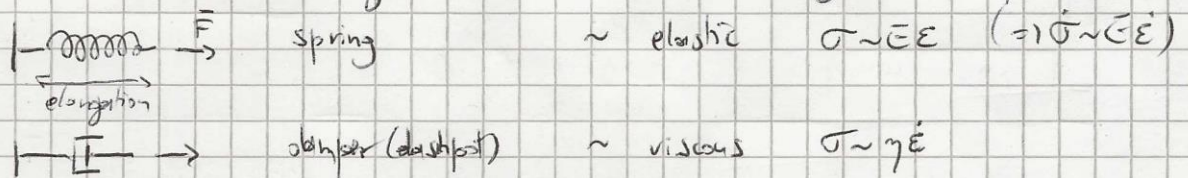 F̄ spring ~ elastic σ~Eε (⇒ σ̇~Eε̇)
elongation
damper (dashpot) ~ viscous σ~ηε̇